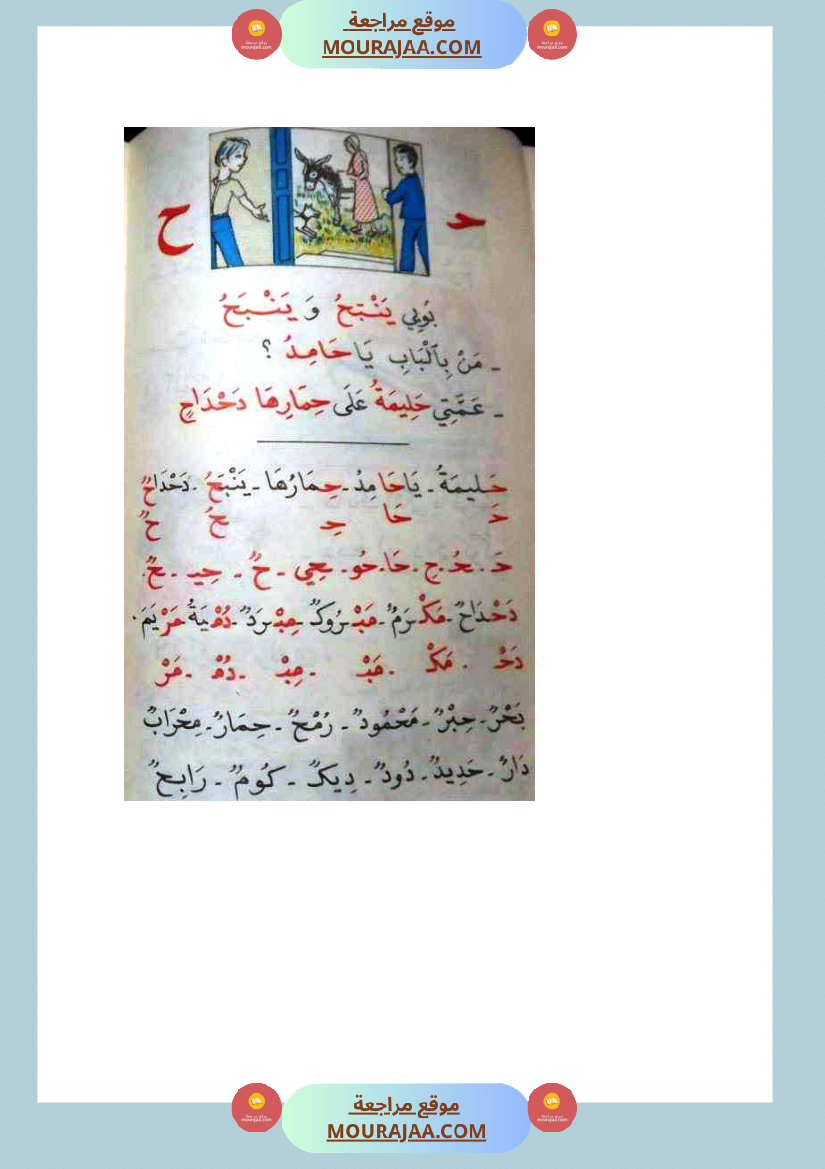 موقع مراجعة
MOURAJAA.COM
حـ ح
بُوبِي يَنْبَحُ وَ يَنْبَحُ
ـ مَنْ بِالْبَابِ يَا حَامِدُ ؟
ـ عَمَّتِي حَلِيمَةُ عَلَى حِمَارِهَا دَحْدَاحٍ
حَلِيمَةُ - يَا حَامِدُ - حِمَارُهَا - يَنْبَحُ - دَحْدَاحٌ
حَـ حَا حِـ ـحُ حٌ
حَـ - ـحُـ - حِ - حَا - حُو - حِي - حٌ - حِيـ - ـحٌ
دَحْدَاحٌ - مَكْرَمٌ - مَبْرُوكٌ - مِبْرَدٌ - دُمْيَةٌ مَرْيَمَ .
دَحْـ - مَكْـ - مَبْـ - مِبْـ - دُمْـ - مَرْ
بَحْرٌ - حِبْرٌ - مَحْمُودٌ - رُمْحٌ - حِمَارٌ - مِحْرَابٌ
دَارٌ - حَدِيدٌ - دُودٌ - دِيكٌ - كُومٌ - رَابِحٌ
موقع مراجعة
MOURAJAA.COM